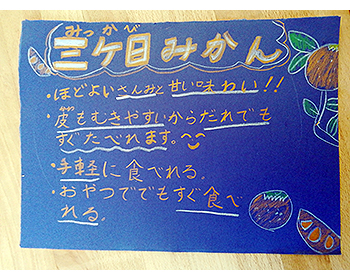 みっかべ
三ケ日みかん
・ほどよいさんみと甘い味わい!!
・皮もむきやすいからだれでも
すぐたべれます。
・手軽に食べれる。
・おやつでもすぐ食べ
れる。